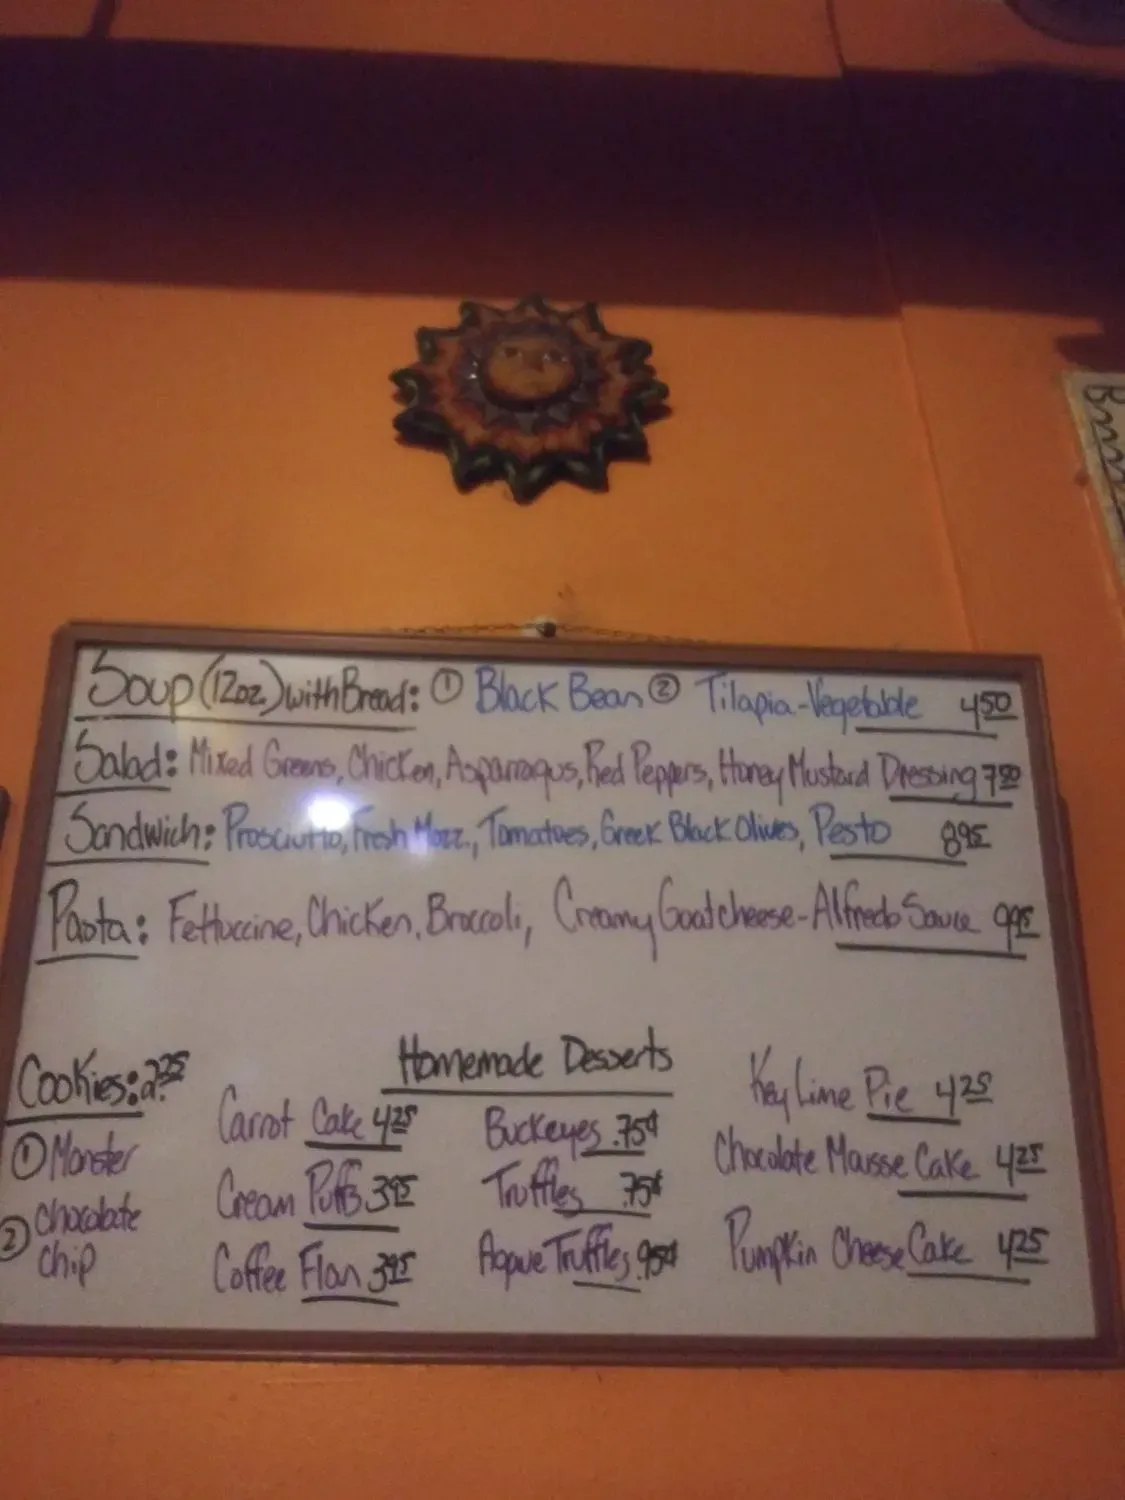 Soup (12oz.) with Bread: ① Black Bean ② Tilapia-Vegetable 4.50
Salad: Mixed Greens, Chicken, Asparragus, Red Peppers, Honey Mustard Dressing
Sandwich: Prosciutto, Fresh Mozz., Tomatoes, Greek Black Olives, Pesto 8.95
Pasta: Fettuccine, Chicken, Broccoli, Creamy Goatcheese-Alfredo Sauce 9.95
Homemade Desserts
Cookies:
① Monster
② chocolate
chip
Carrot Cake 4.25
Cream Puffs 3.95
Coffee Flan 3.95
Buckeyes .75¢
Truffles .75¢
Agave Truffles .95¢
Key Lime Pie 4.25
Chocolate Mousse Cake 4.25
Pumpkin Cheese Cake 4.25